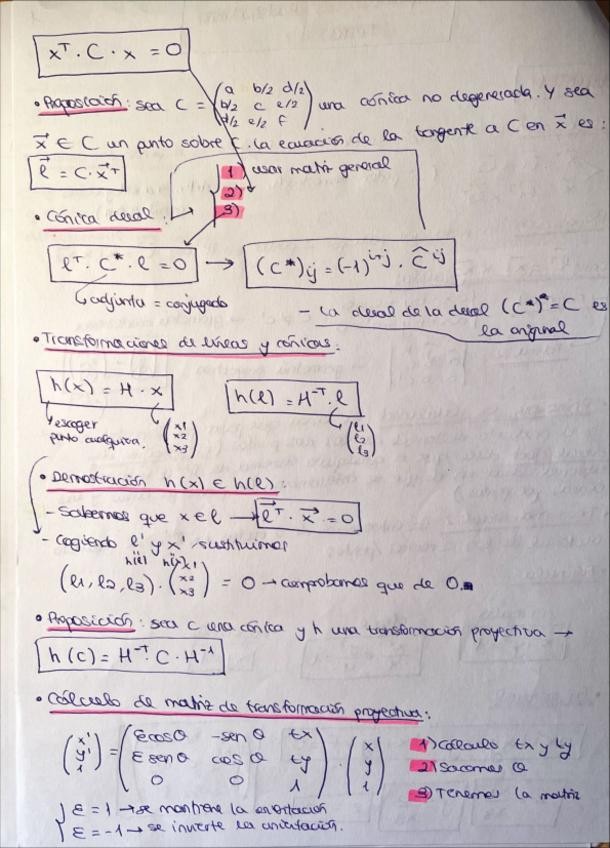 xᵀ · C · x = 0
• Proposición: sea C = (a b/2 d/2 / b/2 c e/2 / d/2 e/2 f) una cónica no degenerada. Y sea
x⃗ ∈ C un punto sobre C. La ecuación de la tangente a C en x⃗ es:
ℓ⃗ = C · x⃗ᵀ
1) usar matriz general
2)
3)
• Cónica dual:
ℓᵀ · C* · ℓ = 0 → (C*)ij = (-1)^(i+j) · Ĉij
adjunta = conjugado
- La dual de la dual (C*)* = C es
la original
• Transformaciones de líneas y cónicas:
h(x) = H · x h(ℓ) = H⁻ᵀ · ℓ
escoger
punto cualquiera. (x1 / x2 / x3) (ℓ1 / ℓ2 / ℓ3)
• Demostración h(x) ∈ h(ℓ):
- Sabemos que x ∈ ℓ → ℓ⃗ᵀ · x⃗ = 0
- Cogiendo ℓ' y x' sustituimos
h(ℓ) h(x)
(ℓ1, ℓ2, ℓ3) · (x1 / x2 / x3) = 0 → comprobamos que de 0.
• Proposición: sea C una cónica y h una transformación proyectiva →
h(C) = H⁻ᵀ · C · H⁻¹
• Cálculo de matriz de transformación proyectiva:
(x' / y' / 1) = (εcosθ -senθ tx / εsenθ cosθ ty / 0 0 1) · (x / y / 1)
1) Cálculo tx y ty
2) Sacamos θ
3) Tenemos la matriz
ε = 1 → se mantiene la orientación
ε = -1 → se invierte la orientación.